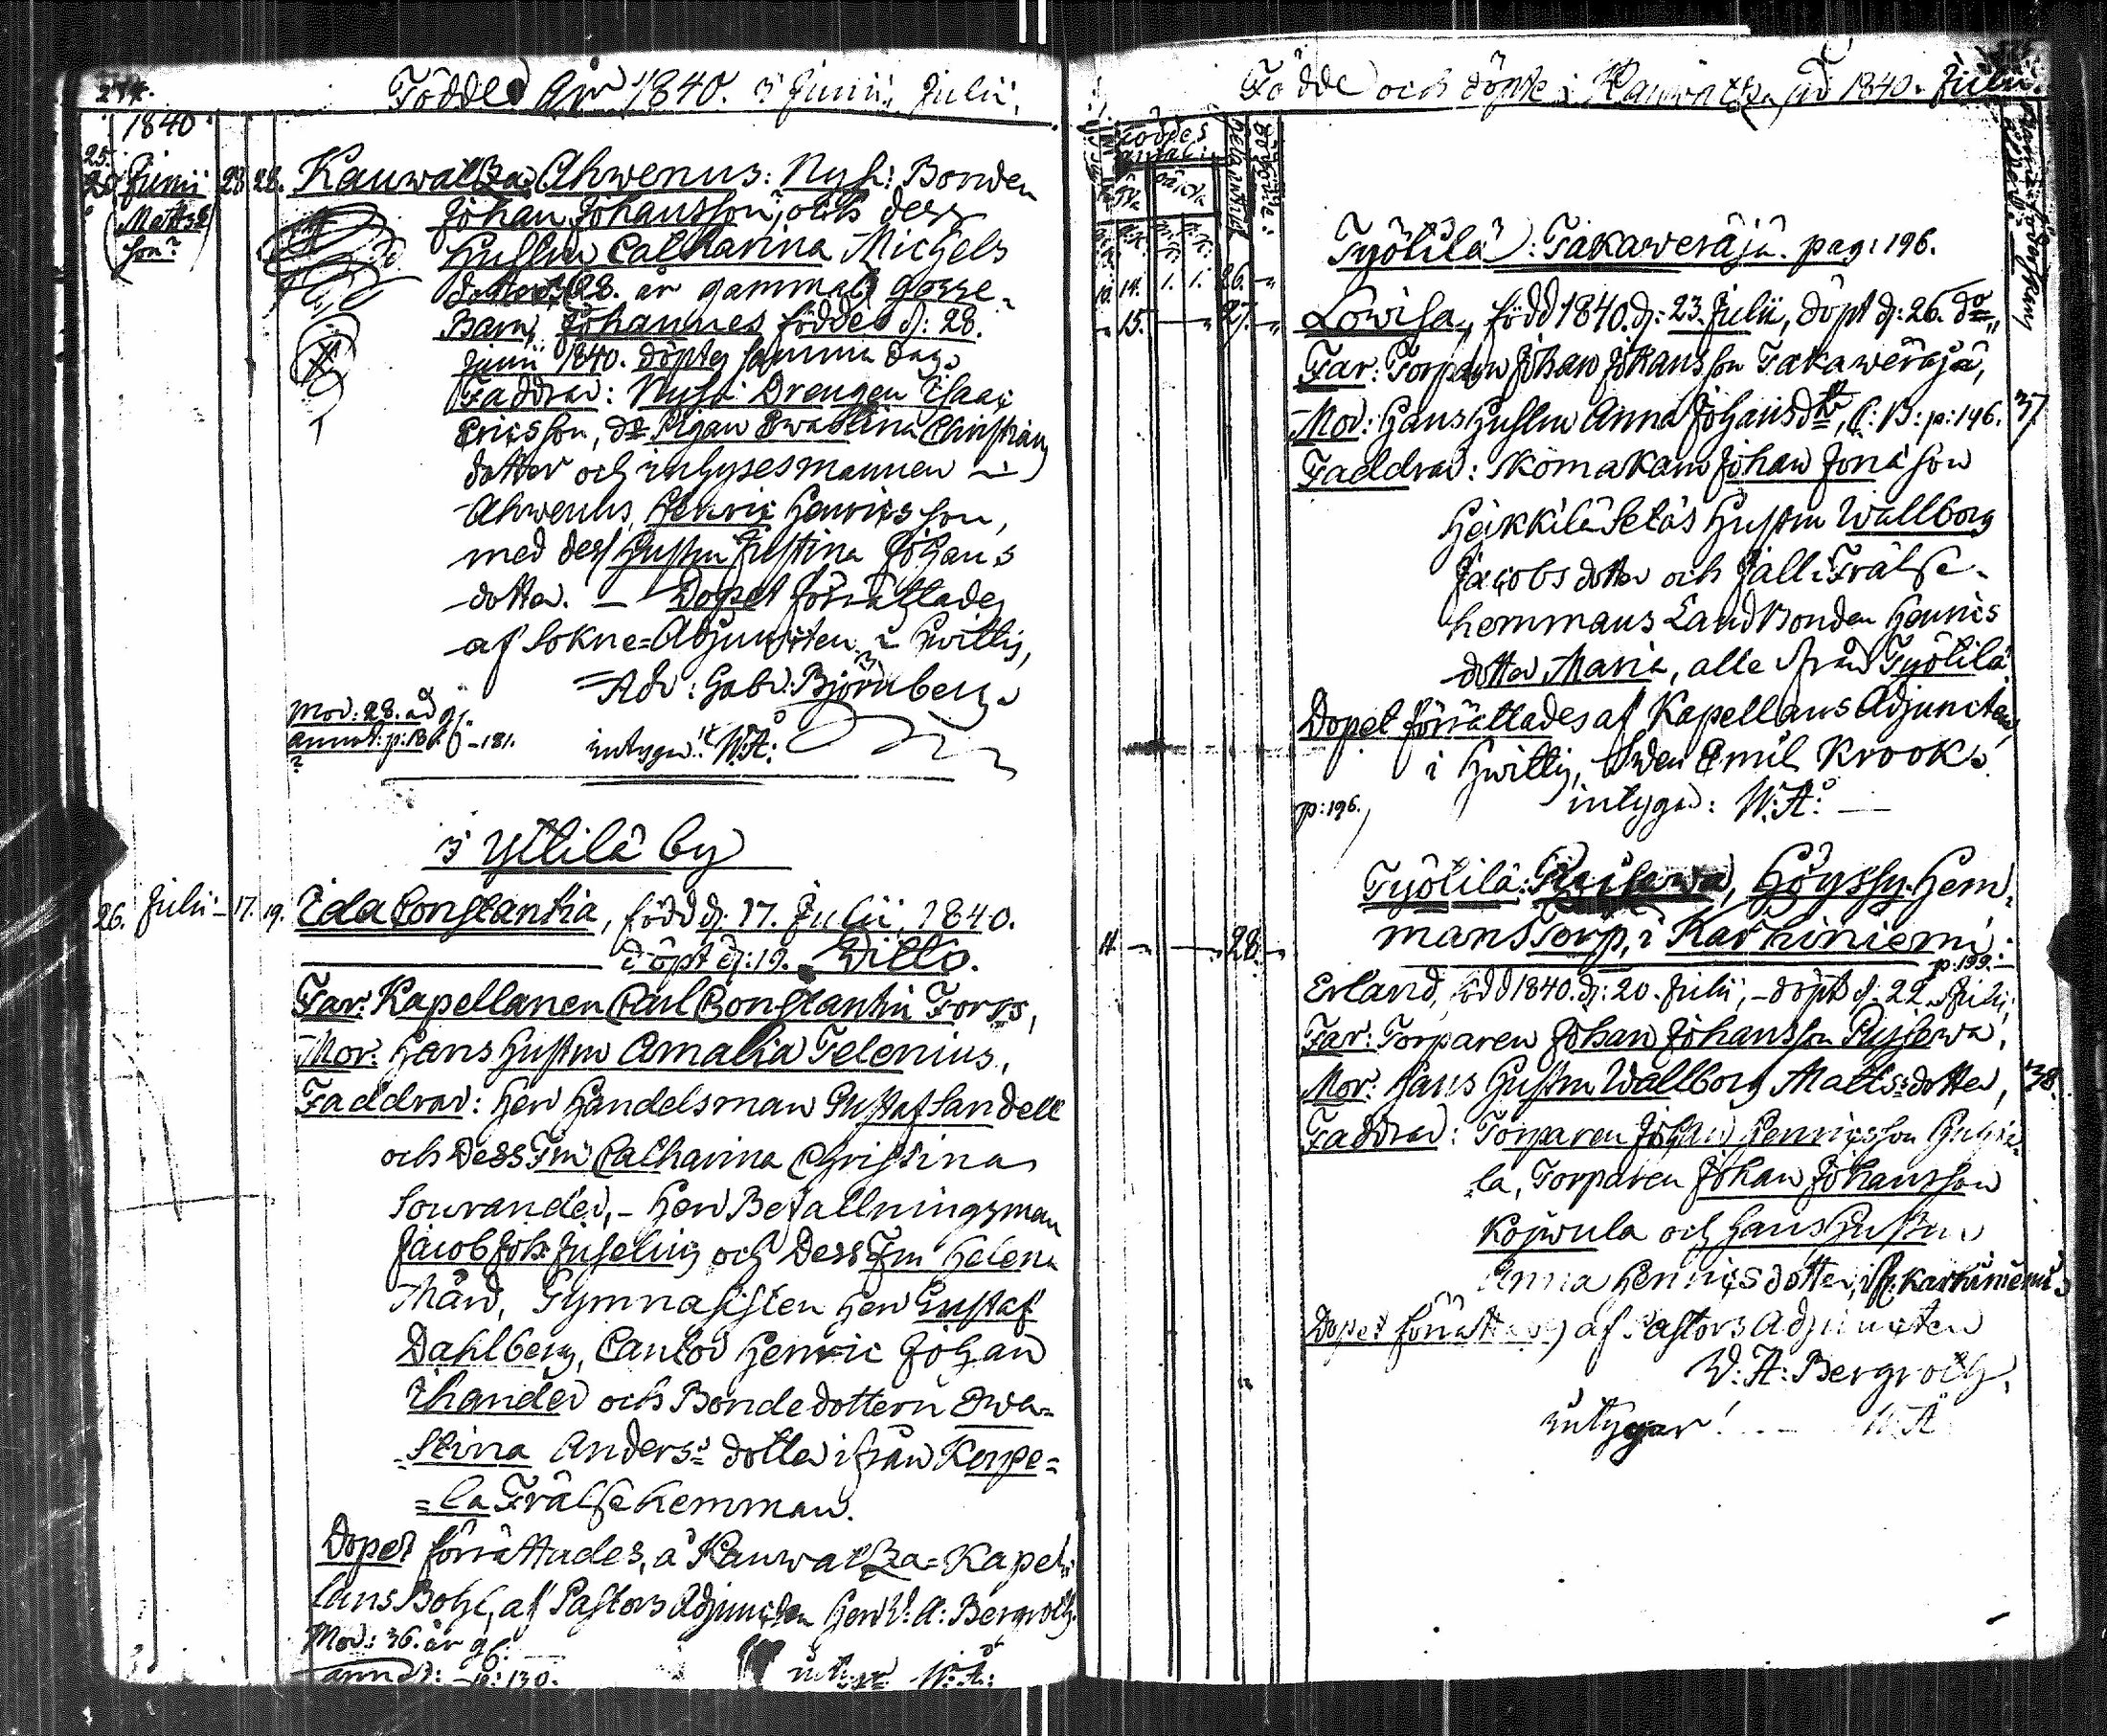 Föddes År 1840. i Junii, Julii.
1840
25.
Junii 28 28. Kauwatza, Ahwenus: Nyb: Bonden
(Matts
son?)
Johan Johansson, och dess
Hustru Catharina Michels
dotters, 28. år gammal, gosse-
Barn, Johannes föddes d: 28.
Junii 1840. döptes samma dag.
Faddrar: Nyb: Drengen Isaac
Ericsson, do Pigan Ewastina Christians
dotter och inhysesmannen i
Ahwenus, Henric Henricsson,
med dess Hustru Justina Johans
dotter. — Dopet förrättades
af Sokne=Adjuncten i Hwittis,
Adr: Gabr: Björnberg.
Mor: 28. år gl.
annot: p: 181.
intygar: W:Å:
i Yttilä by
26. Julii 17. 19. Ida Constantia, född d: 17. Julii, 1840.
döpt d: 19. Ditto.
Far: Kapellanen Carl Constantin Forss,
Mor: Hans Hustru Amalia Telenius,
Faddrar: Herr Handelsman Gustaf Sandell
och Dess Fru Catharina Christina
Sourander, – Herr Befallningsman
Jacob Joh: Juselius och Dess Fru Helena
Mård, Gymnasisten Herr Gustaf
Dahlberg, Cantor Henric Johan
Thander och Bondedottern Ewa=
Stina Anders= dotter ifrån Kerpe=
=la Frälsehemman.
Dopet förrättades, å Kauwatza=Kapel=
lans Bohl, af Pastors Adjuncten Herr W: A: Bergroth.
Mor: 36. år gl.
annot: p: 130.
intygar W:Å:
Födde och döpte i Kauwatza, år 1840. Julii.
Föddes
antal:
Hela antalet
10. 14. 1. 1. 26.
15. 27.
Työtilä: Takaweräjä. pag: 196.
Lowisa, född 1840. d: 23. Julii, döpt d: 26. do,
Far: Torparen Johan Johansson Takaweräjä,
Mor: Hans Hustru Anna Johansdtr, C: B: p: 196. 37
Faddrar: Skomakaren Johan Jonasson
Heikkilä Setäs Hustru Wallborg
Jacobsdotter och Jalli Frälse-
hemmans Landbonden Henrics
dotter Maria, alle ifrån Työtilä.
Dopet förrättades af Kapellans Adjuncten,
i Hwittis, Sven Emil Krook.
p: 196.
intygar: W:Å: —
Työtilä: Höyssy-Hem-
mans Torp, i Karhiniemi:
p: 199.
11. 28.
Erland, född 1840. d: 20. Julii, – döpt d: 22. Julii,
Far: Torparen Johan Johansson
Mor: Hans Hustru Wallborg Matts=dotter, 38.
Faddrar: Torparen Johan Henricsson
la, Torparen Johan Johansson
Kojwula och Hans Hustru
Anna Henricsdotter, ifr. Karhiniemi.
Dopet förrättades af Pastors Adjuncten
W: A: Bergroth,
intygar! W:Å